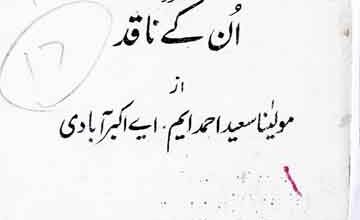 اُن کے ناقد
۱۶
از
مولیٰنا سعید احمد ایم۔اے اکبر آبادی